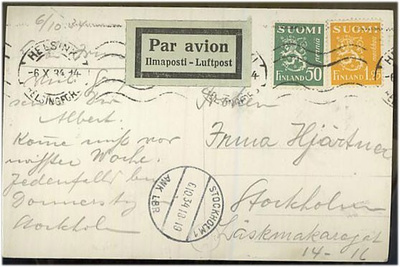 6/10.34
HELSINKI
-6.X.34.14-
HELSINGFORS
Par avion
Ilmaposti - Luftpost
SUOMI
50
FINLAND
SUOMI
FINLAND
Albert.
Komme nicht vor
nächster Woche.
Jedenfalls bin
Donnerstag
Stockholm
Irma Hjärtner
Stockholm
Läskmakaregat
14-16
STOCKHOLM 1
6.10.34.18-19
ANK LBR